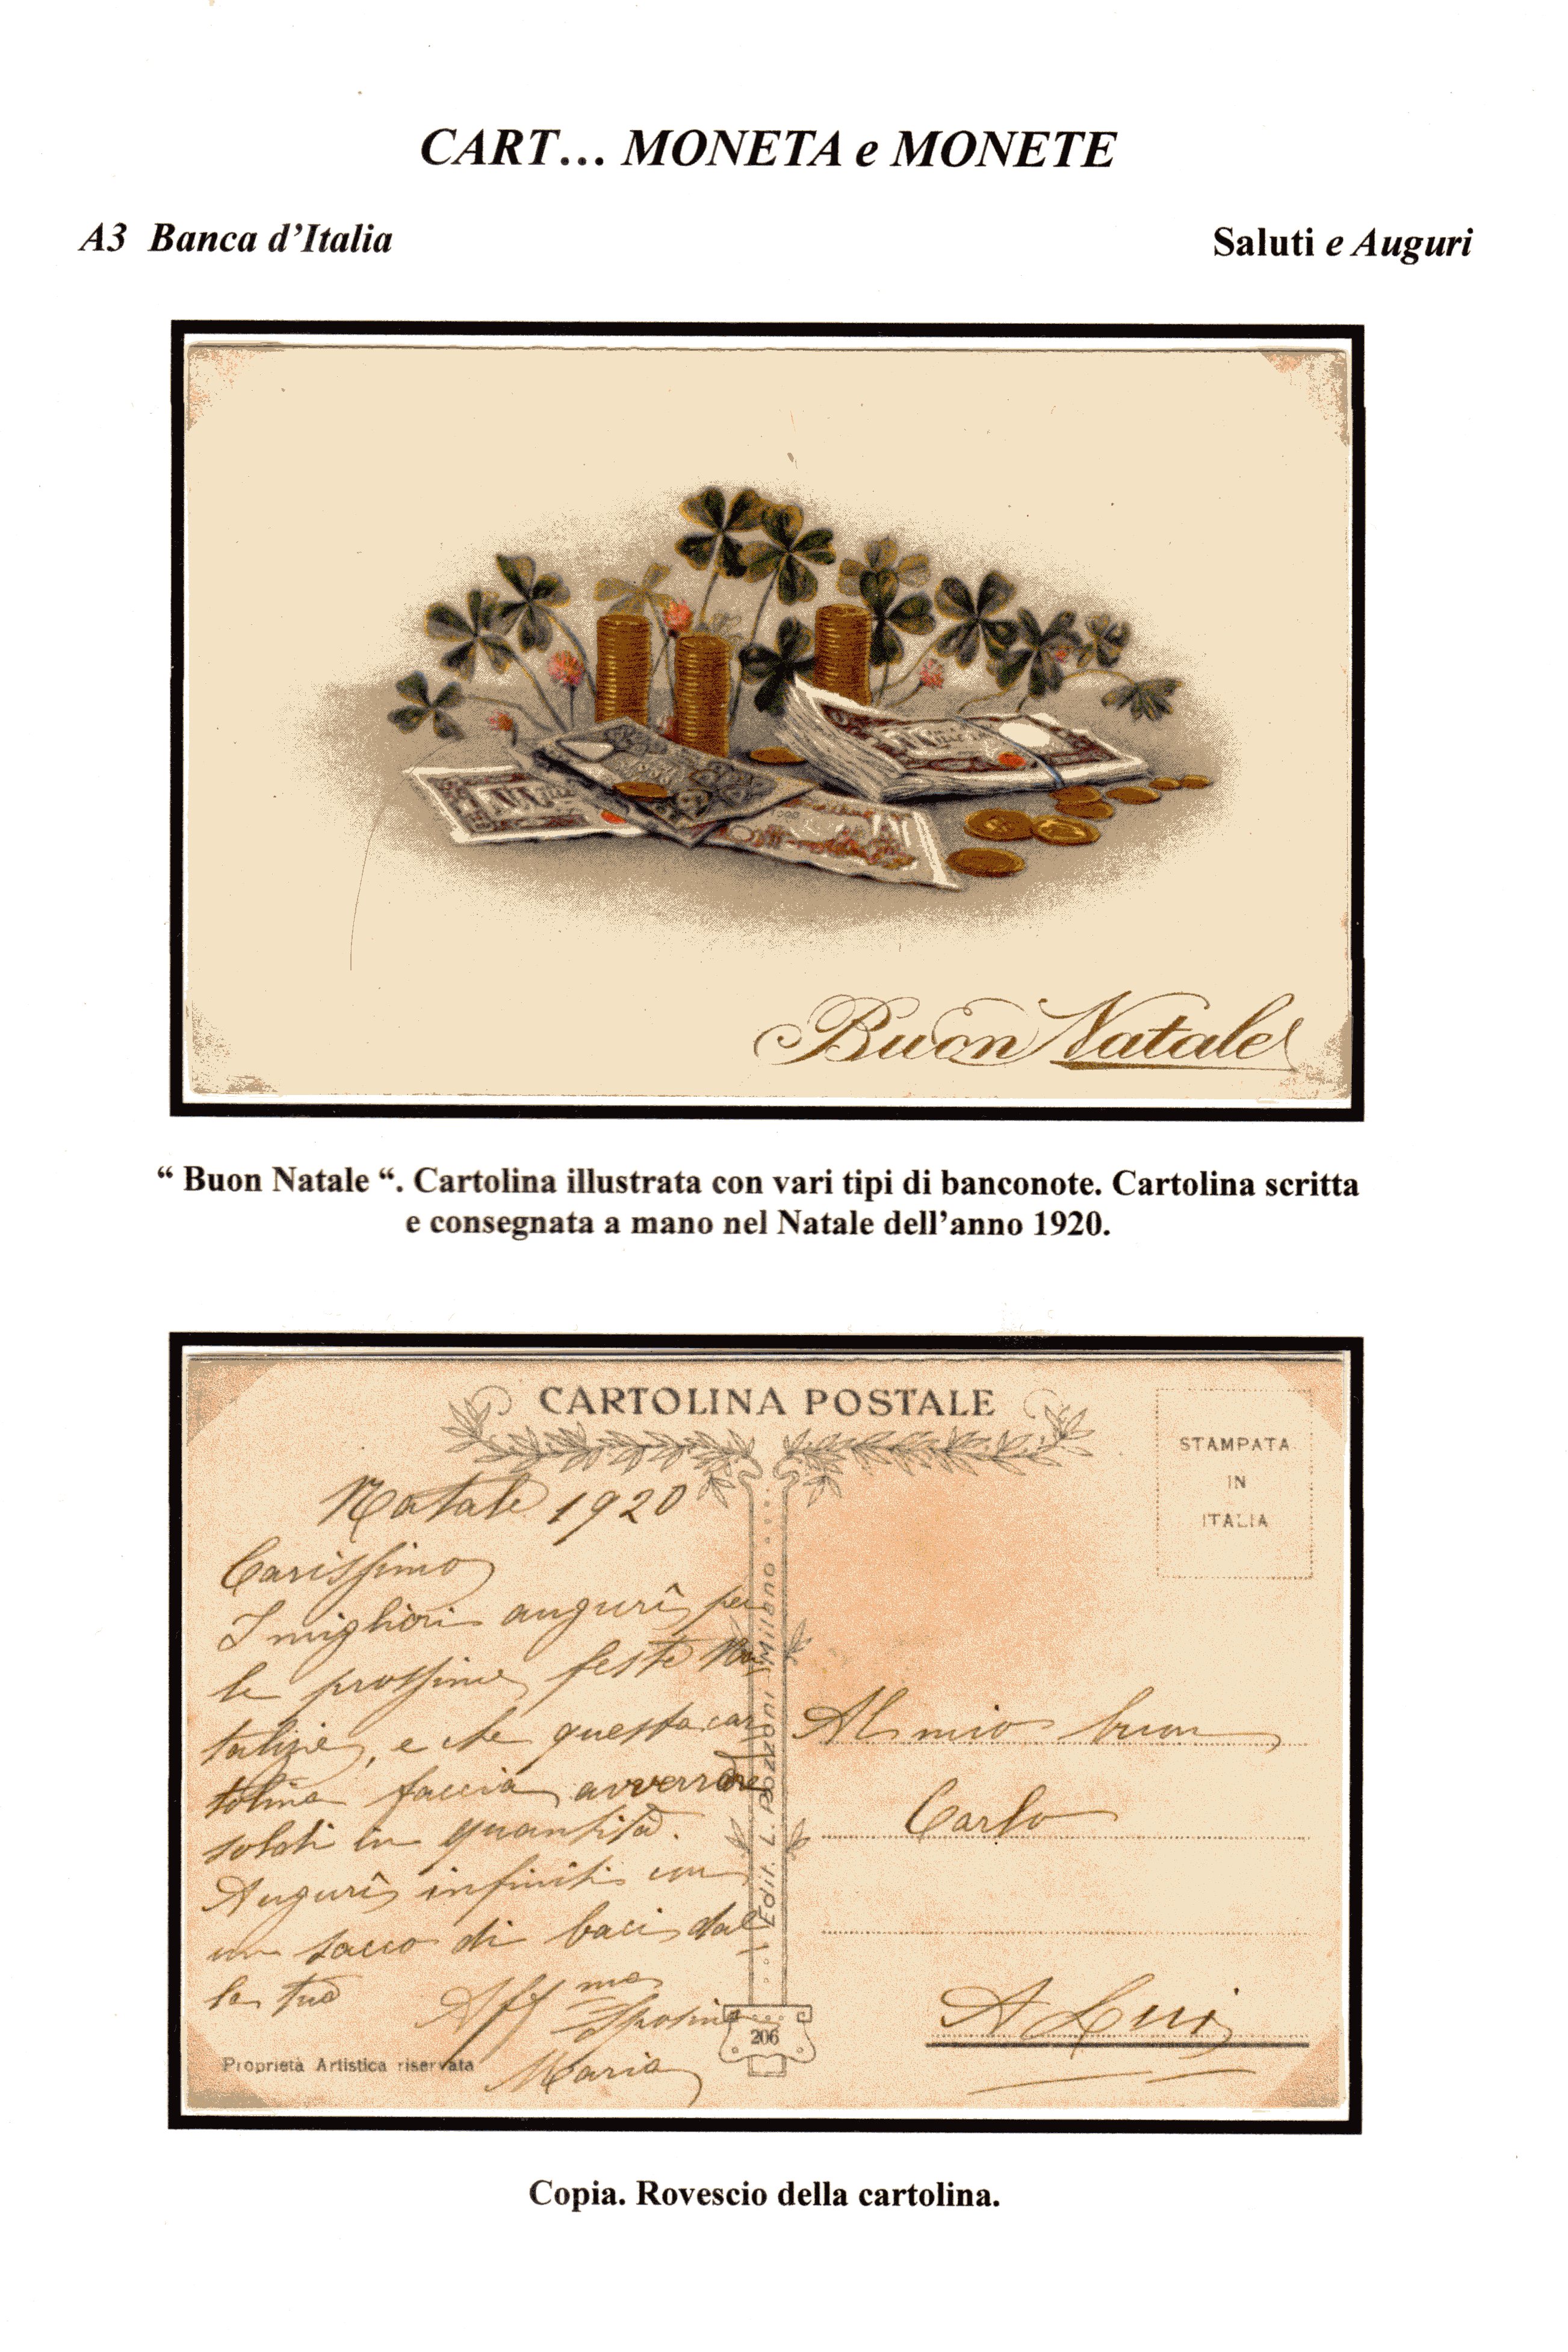 CART... MONETA e MONETE
A3 Banca d'Italia
Saluti e Auguri
Buon Natale
“ Buon Natale “. Cartolina illustrata con vari tipi di banconote. Cartolina scritta
e consegnata a mano nel Natale dell'anno 1920.
CARTOLINA POSTALE
STAMPATA
IN
ITALIA
Natale 1920
Carissimo
I migliori auguri per
le prossime feste Na
talizie, e che questa car
tolina faccia avverrare
soldi in quantità.
Auguri infiniti con
un sacco di baci dal
la tua
Aff ma
Sposina
Maria
Edit. L. Pozzoni - Milano
206
Proprietà Artistica riservata
Al mio buon
Carlo
A Lui
Copia. Rovescio della cartolina.